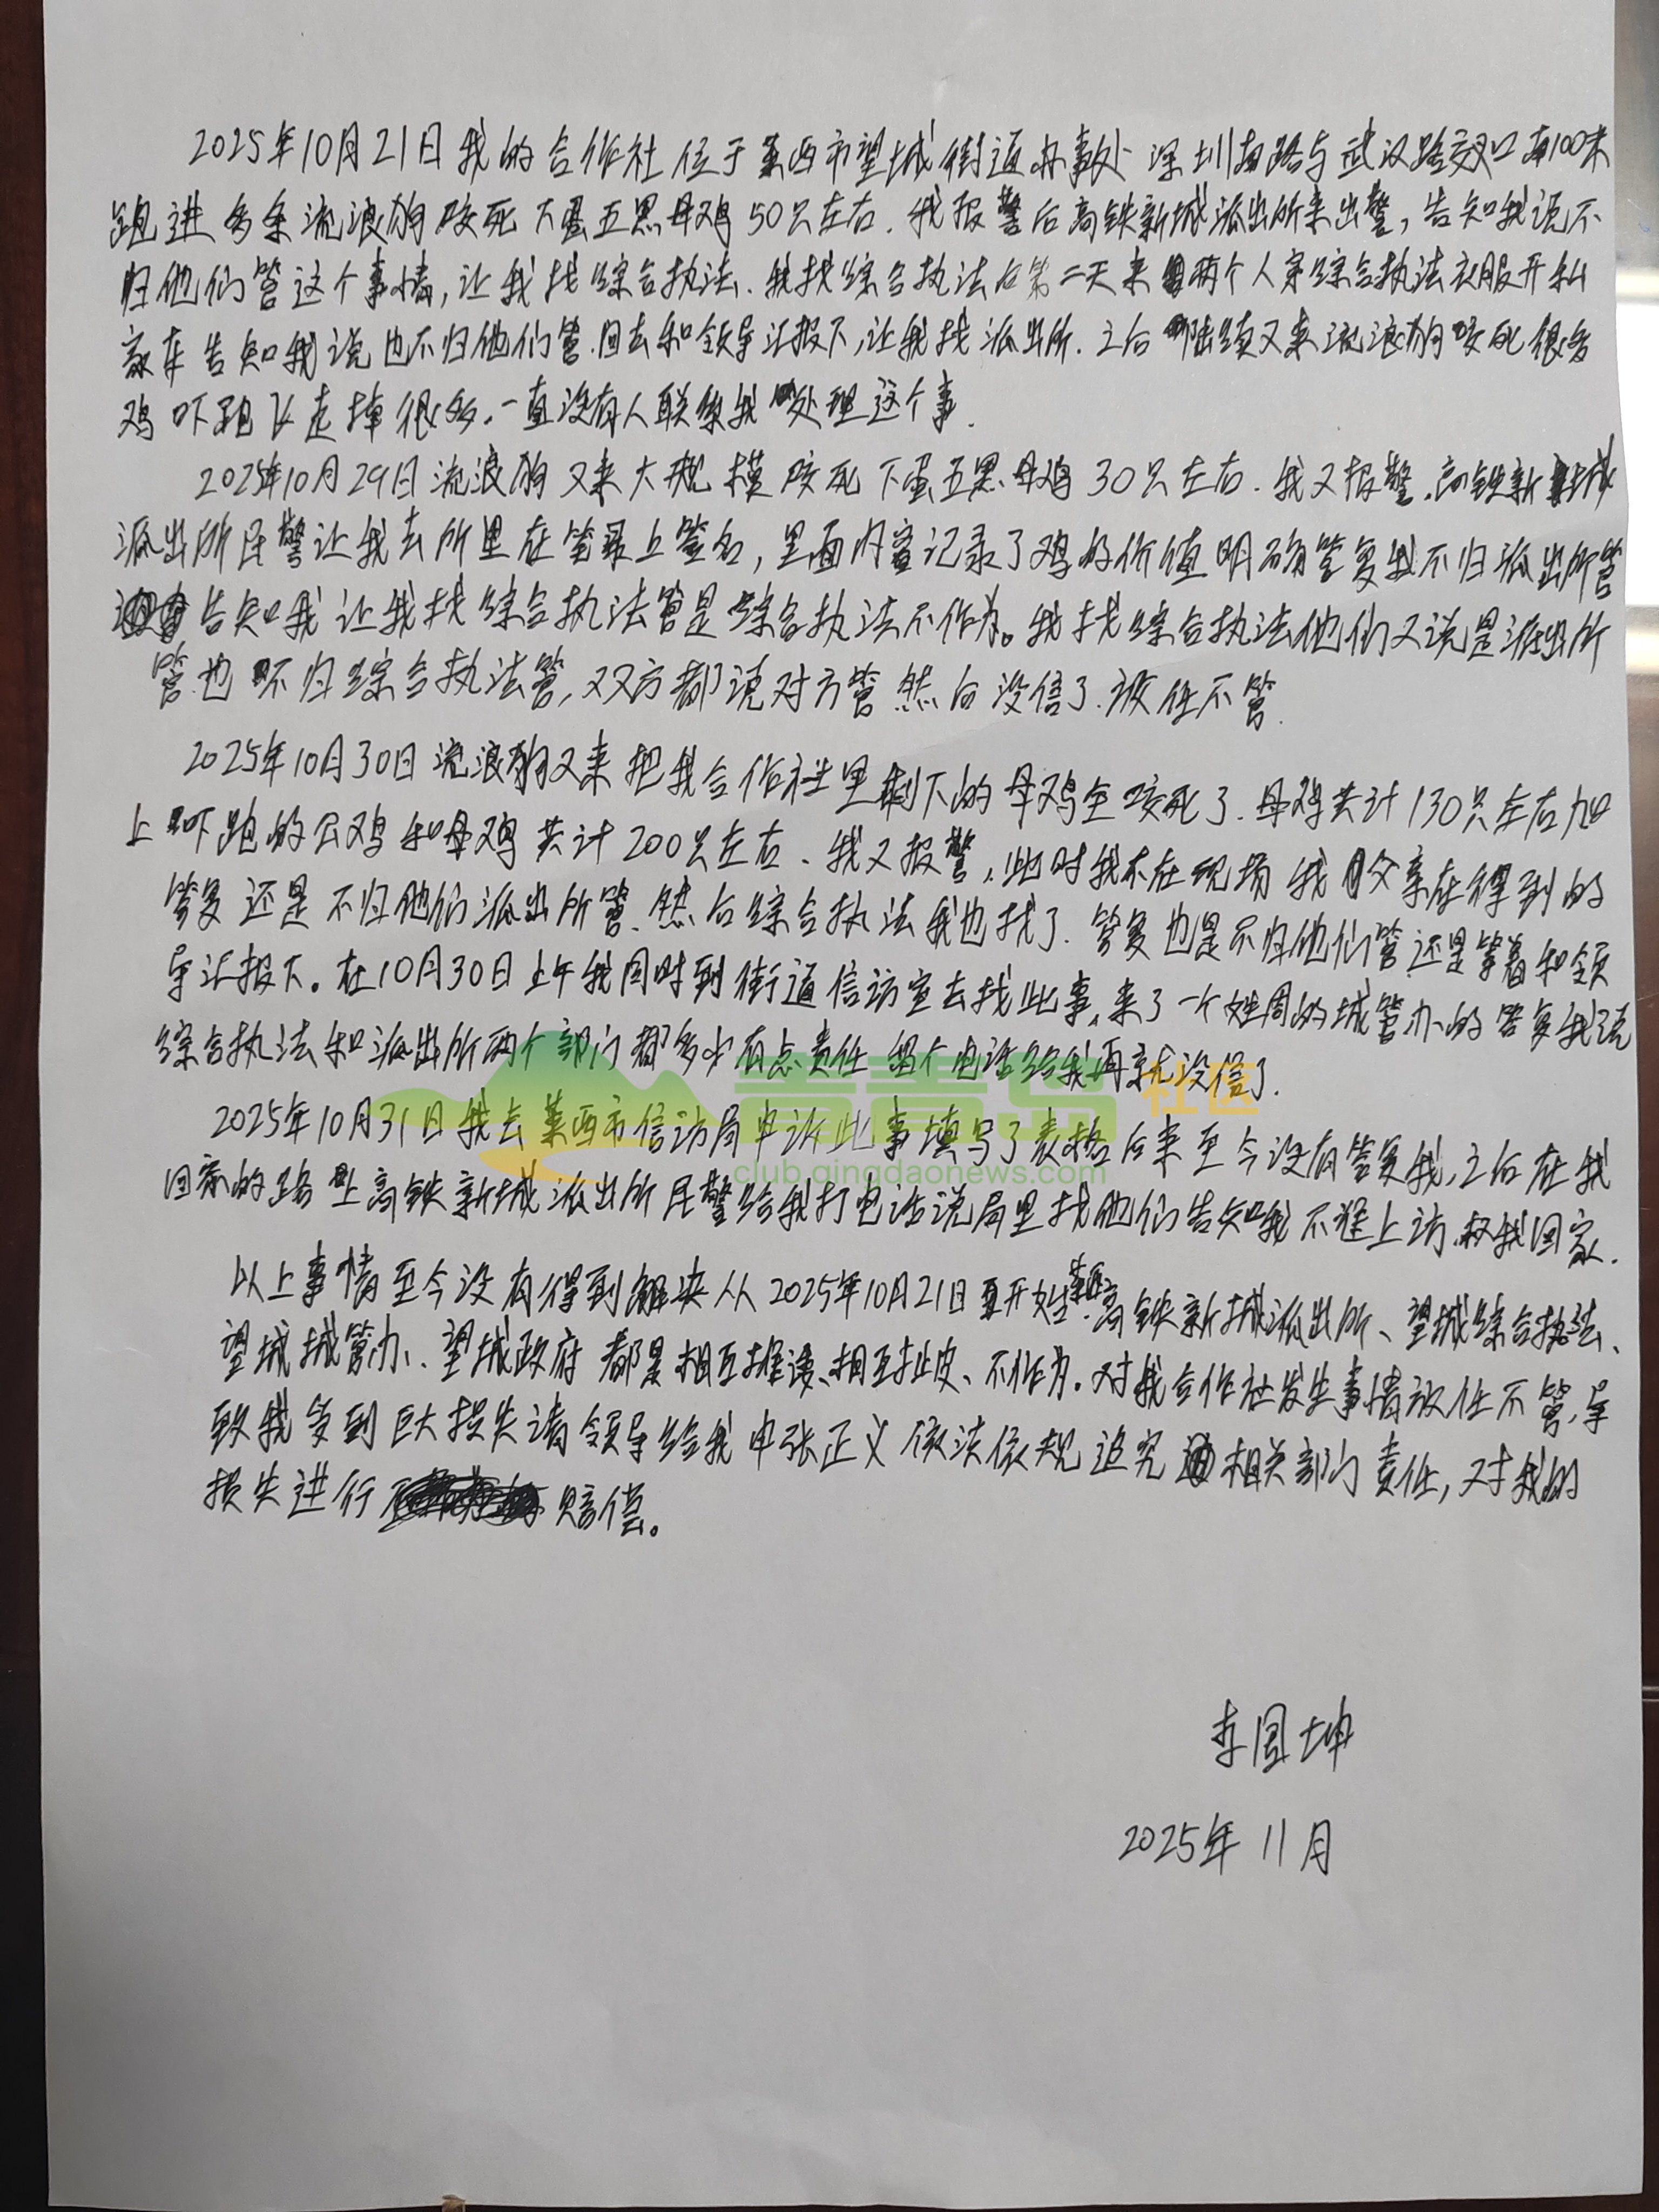 2025年10月21日我的合作社位于莱西市望城街道办事处深圳路与武汉路交叉口南100米
跑进多条流浪狗咬死下蛋五黑母鸡50只左右.我报警后高铁新城派出所来出警,告知我说不
归他们管这个事情,让我找综合执法.我找综合执法后第二天来两个人穿综合执法衣服开私
家车告知我说也不归他们管.回去和领导汇报下,让我找派出所.之后陆续又来流浪狗咬死很多
鸡吓跑飞走掉很多.一直没有人联系我处理这个事.
2025年10月29日流浪狗又来大规模咬死下蛋五黑母鸡30只左右.我又报警.高铁新城
派出所民警让我去所里在笔录上签名,里面内容记录了鸡的价值明确答复我不归派出所管
告知我让我找综合执法管是综合执法不作为。我找综合执法他们又说是派出所
管也不归综合执法管,双方都说对方管然后没信了.放任不管.
2025年10月30日流浪狗又来把我合作社里剩下的母鸡全咬死了.母鸡共计130只左右加
上吓跑的公鸡和母鸡共计200只左右.我又报警,此时我不在现场我父亲在得到的
答复还是不归他们派出所管.然后综合执法我也找了.答复也是不归他们管还是等着和领
导汇报下。在10月30日上午我同时到街道信访室去找此事,来了一个姓周的城管办的答复我说
综合执法和派出所两个部门都多少有点责任留个电话给我再就没信了.
2025年10月31日我去莱西市信访局申诉此事填写了表格后来至今没有答复我,之后在我
回家的路上高铁新城派出所民警给我打电话说局里找他们告知我不准上访.叫我回家.
以上事情至今没有得到解决从2025年10月21日开始莱西高铁新城派出所、望城综合执法、
望城城管办、望城政府都是相互推诿、相互扯皮、不作为.对我合作社发生事情放任不管,导
致我受到巨大损失请领导给我申张正义依法依规追究相关部门责任,对我的
损失进行赔偿。
青青岛社区
club.qingdaonews.com
李国坤
2025年11月